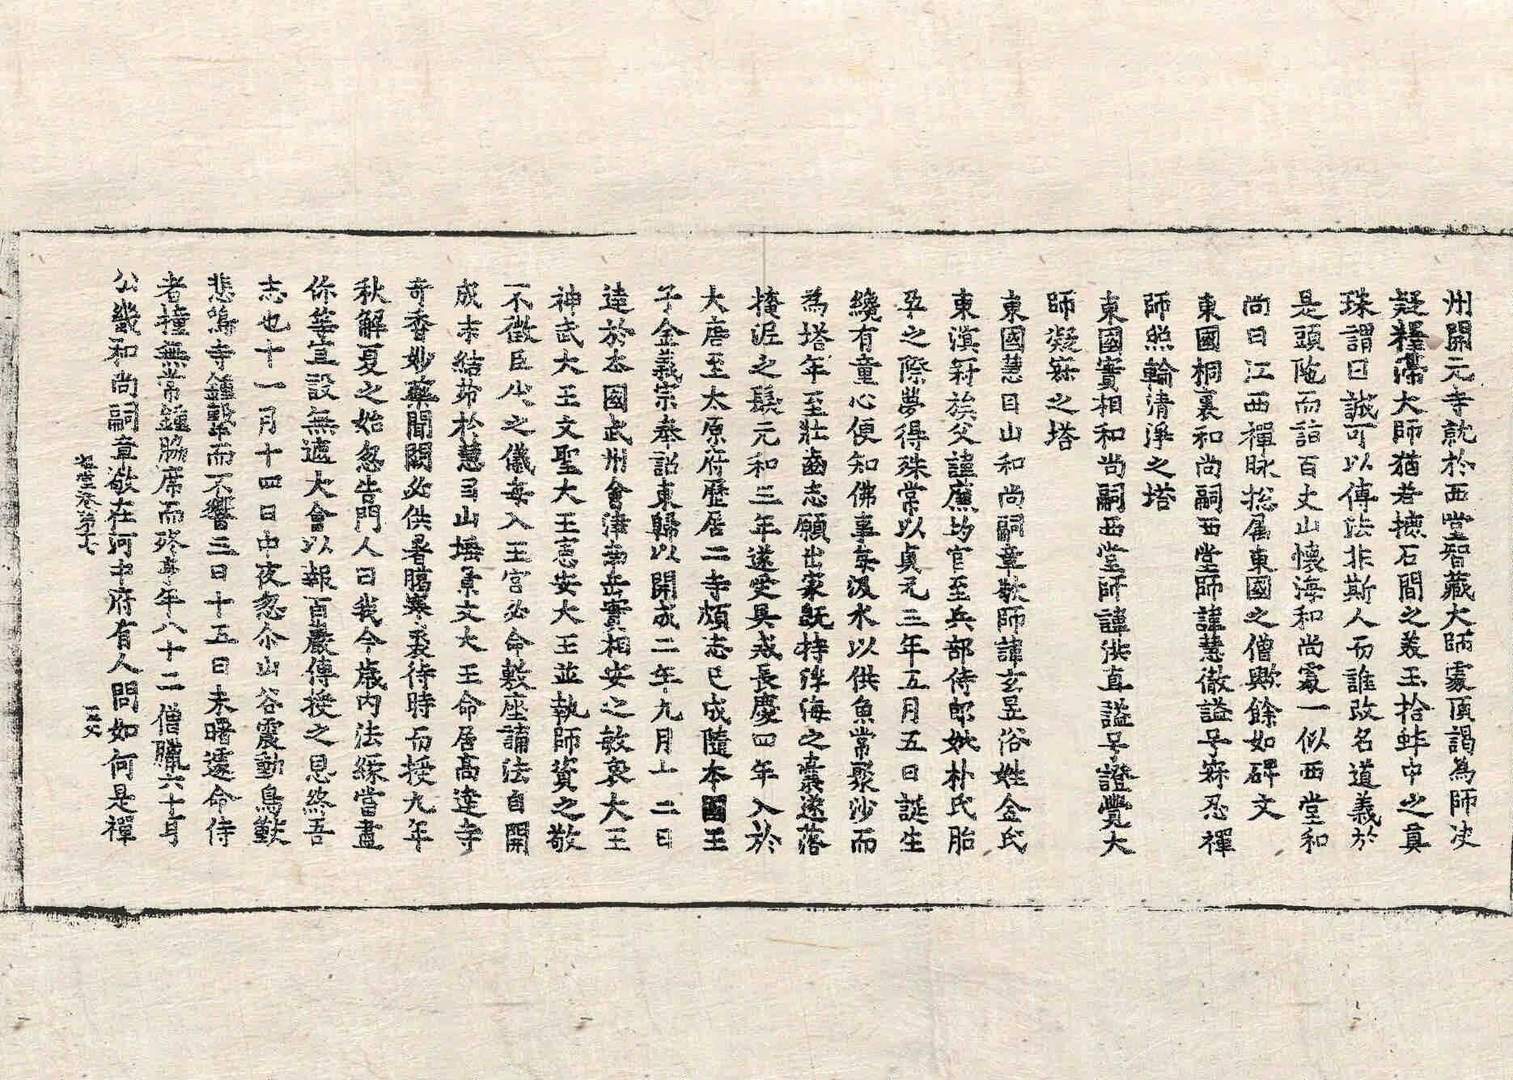 州開元寺就於西堂智藏大師處頂謁為師决
疑釋滯大師猶若摭石間之美玉拾蚌中之真
珠謂曰誠可以傳法非斯人而誰改名道義於
是頭陁而詣百丈山懷海和尚處一似西堂和
尚曰江西禪脉捴属東國之僧歟餘如碑文
東國桐裏和尚嗣西堂師諱慧徹謚号寂忍禪
師照輪清淨之塔
東國實相和尚嗣西堂師諱洪直謚号證覺大
師凝寂之塔
東國慧目山和尚嗣章敬師諱玄昱俗姓金氏
東溟冠族父諱廉均官至兵部侍郎妣朴氏胎
孕之際夢得殊常以貞元三年五月五日誕生
纔有童心便知佛事每汲水以供魚常聚沙而
為塔年至壯齒志願出家旣持浮海之囊遂落
掩泥之髮元和三年遂受具戒長慶四年入於
大唐至太原府歷居二寺頗志已成隨本國王
子金義宗奉詔東歸以開成二年九月十二日
達於本國武州會津南岳實相安之敏哀大王
神武大王文聖大王憲安大王並執師資之敬
不徵臣伏之儀每入王宮必命敷座講法自開
成末結茆於慧目山埵景文大王命居高達寺
奇香妙藥聞闕必供暑臈寒裘待時而授九年
秋解夏之始忽告門人曰我今歳内法緣當盡
你等宜設無遮大會以報百巖傳授之恩終吾
志也十一月十四日中夜忽尒山谷震動鳥獸
悲鳴寺鍾擊而不響三日十五日未曙遽命侍
者撞無常鍾脇席而終享年八十二僧臘六十耳
公畿和尚嗣章敬在河中府有人問如何是禪
祖堂卷第十七